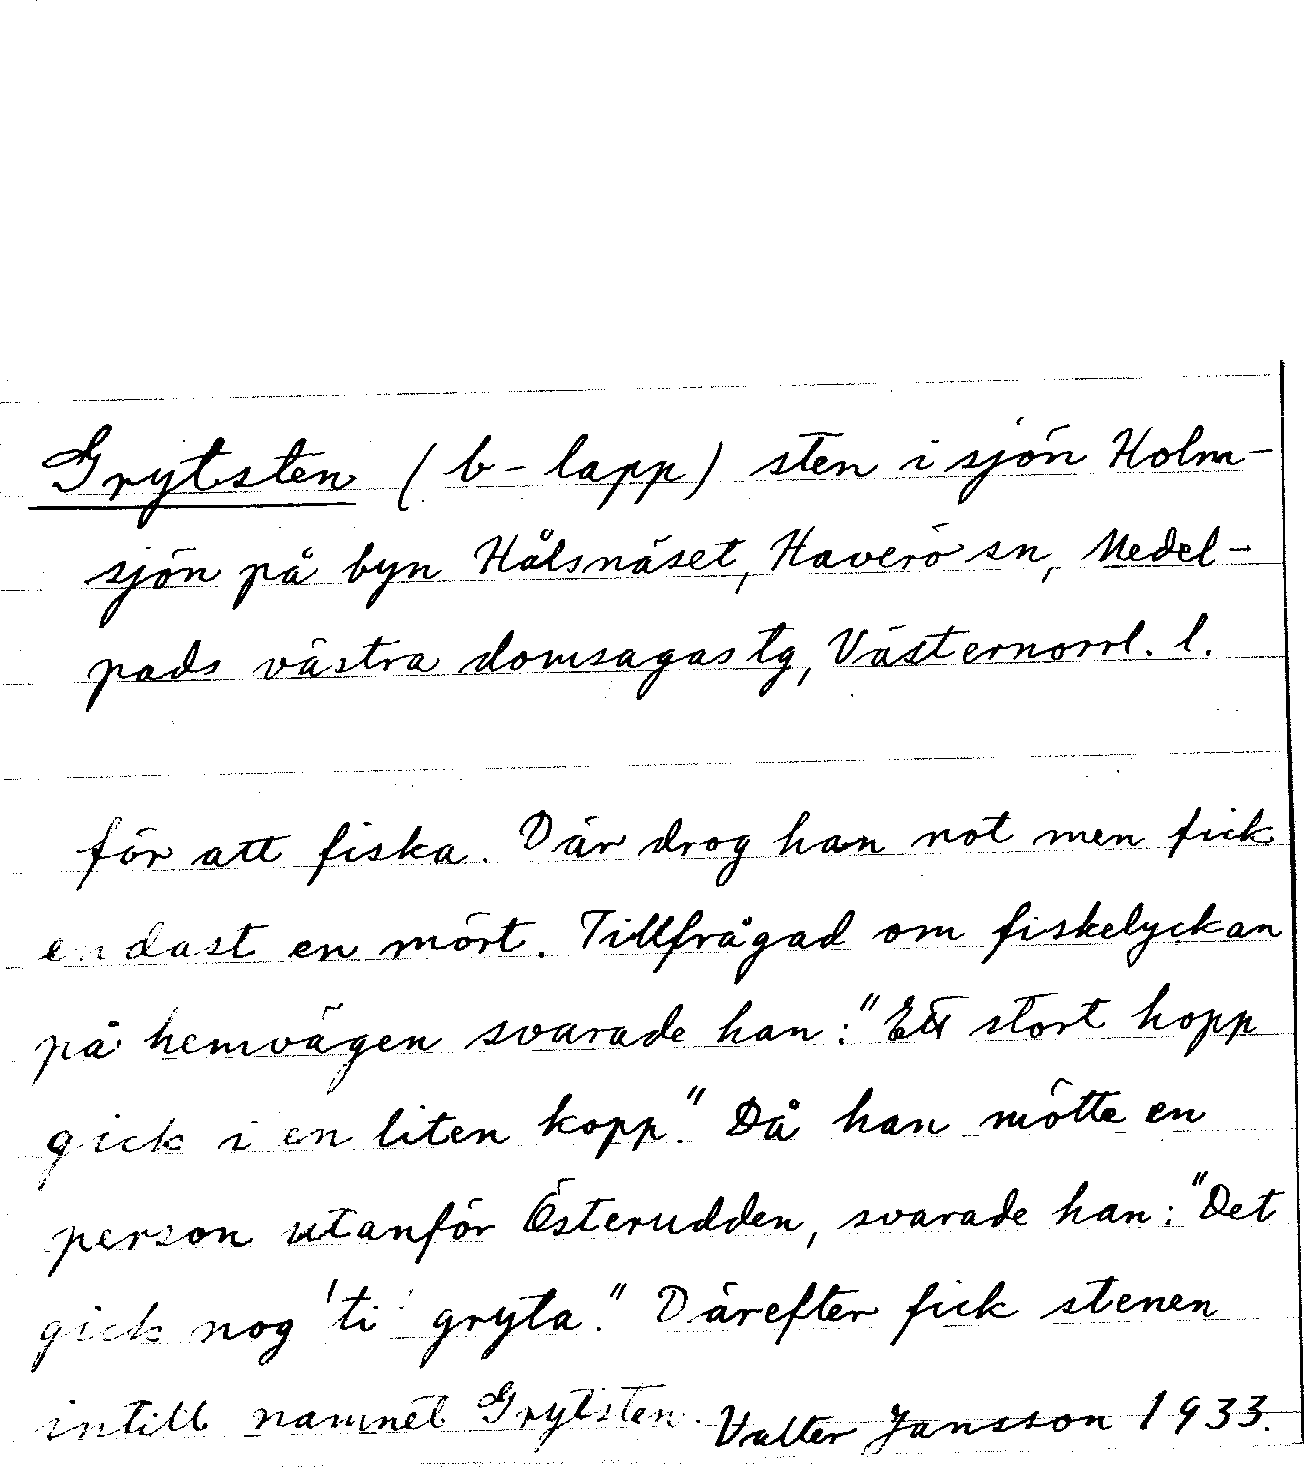 Grytsten (b-lapp) sten i sjön Holm-
sjön på byn Hålsnäset, Haverö sn, Medel-
pads västra domsagas tg, Västernorrl. l.
för att fiska. Där drog han not men fick
endast en mört. Tillfrågad om fiskelyckan
på hemvägen svarade han: "Ett stort hopp
gick i en liten kopp." Då han mötte en
person utanför Österudden, svarade han: "Det
gick nog 'ti' gryta." Därefter fick stenen
intill namnet Grytsten. Valter Jansson 1933.